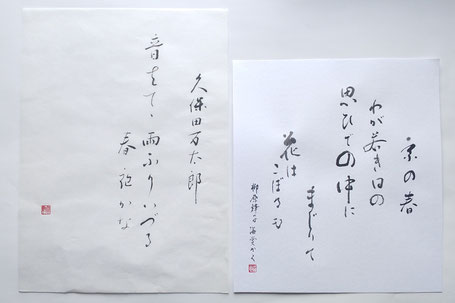 京の春
わが若き日の
思ひでの中に
まじりて
花は
こぼるも
久保田万太郎
音たてゝ
雨ふりいづる
春夜かな